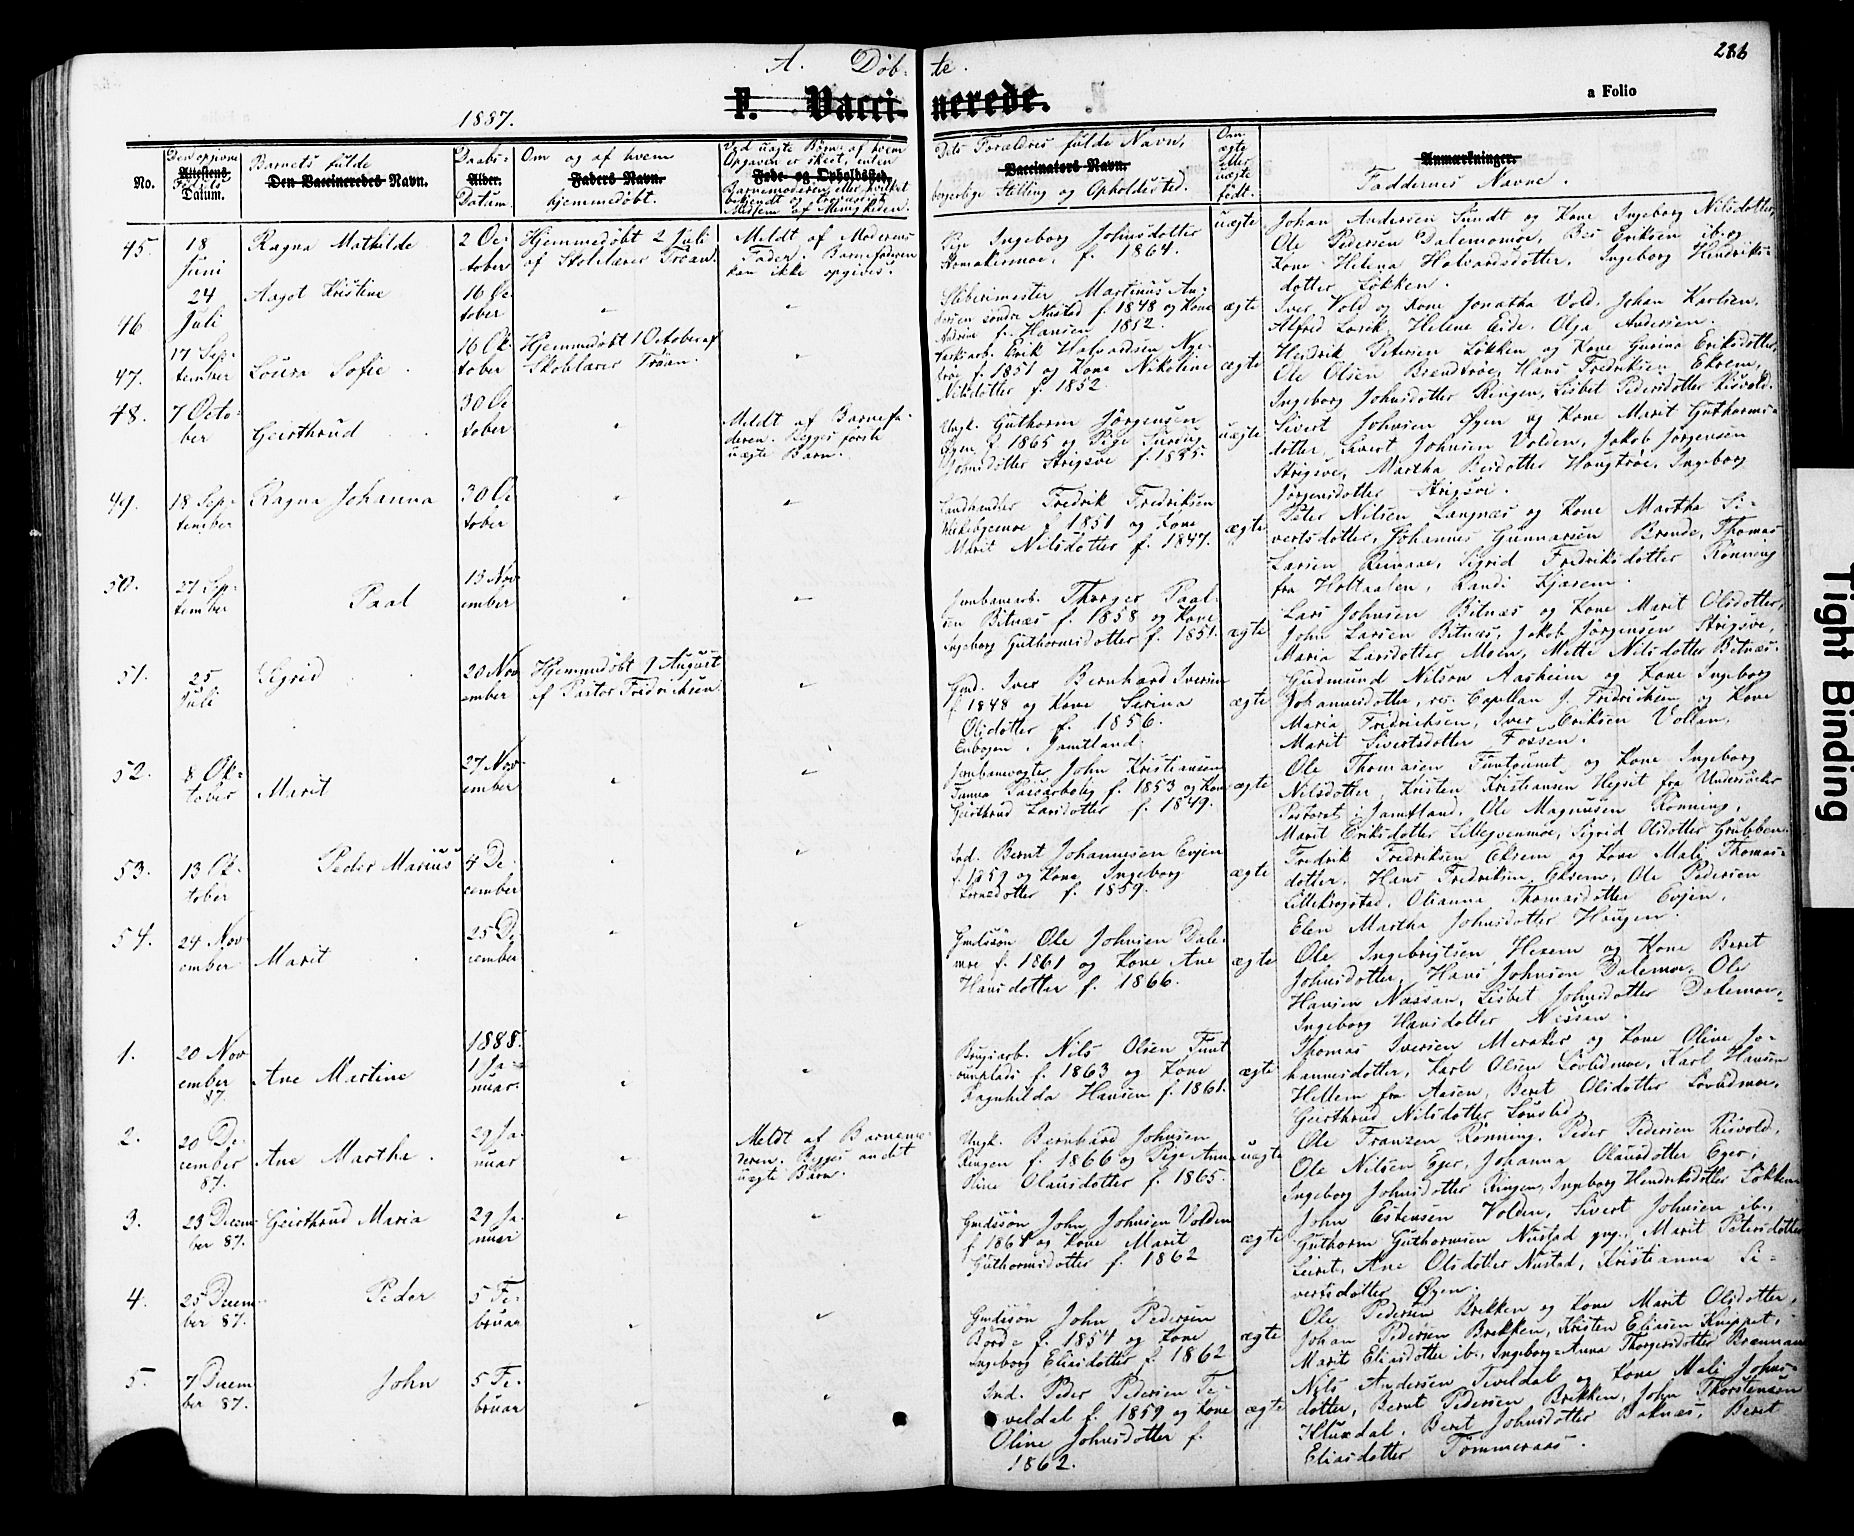 286
A. Døb- te.
F. Vacci- nerede.
a Folio
1887.
No.
Den opgivne
Attestens
Fødsels
Datum.
Barnets fulde
Den Vaccineredes Navn.
Daabs-
Alder.
Datum
Om og af hvem
Faders Navn.
hjemmedøbt.
Ved uægte Børn: af hvem
Opgaven er skeet, enten
Føde- og Opholdssted.
Barnemoderen eller hvilket
bekjendt og troværdigt
Medlem af Menigheden.
Dets Forældres fulde Navn,
Vaccinators Navn.
borgerlige Stilling og Opholdssted.
Om
ægte
eller
uægte
født.
Anmærkninger.
Faddernes Navne.
45.
18
Juni
Ragna Mathilde
2 Oc-
tober
Hjemmedøbt 2 Juli
af Skolelærer Trøan.
Meldt af Moderens
Fader. Barnefaderen
kan ikke opgives.
Pige Ingeborg Johnsdotter
f. 1864.
uægte
Johan Andersen Sundt og Kone Ingeborg Nilsdotter,
Ole Pedersen Dalemomoe, Ber Eriksen ib. og
Kone Helena Halvardsdotter, Ingeborg Hendriks-
dotter Løkken.
46
24
Juli
Aagot Kristine
16 Oc-
tober
"
"
Sliberimester Martinus An-
dersen søndre Nustad f. 1848 og Kone
f. Hansen 1852.
ægte
Iver Vold og Kone Jonatha Vold, Johan Karlsen,
Alfred Lorik, Helene Eide, Olga Andersen.
47.
17 Sep-
tember
Lovisa Sofie
16 Ok-
tober
Hjemmedøbt 1 October af
Skolelærer Trøan.
"
Erik Halvardsen Nye-
trøe f. 1851 og Kone Nikoline
Nilsdotter f. 1852.
ægte
Hendrik Petersen Løkken og Kone Gurina Eriksdotter,
Ole Olsen Brendtrøe, Hans Fredriksen Ekrem,
Ingeborg Johnsdotter Ringen, Lisbet Pedersdotter Risvold.
48.
7 Octo-
ber
Geirthrud
30 Oc
tober
"
Meldt af Barnefa-
deren. Begges første
uægte Barn.
Ungk. Guthorm Jørgensen
Øyen f. 1865 og Pige
Strigsve f. 1855.
uægte
Sivert Johnsen Øyen og Kone Marit Guthorms-
dotter, Sivert Johnsen Volden, Jakob Jørgensen
Strigsve, Martha Bersdotter Haugtrøe, Ingeborg
Jørgensdotter Strigsve.
49.
18 Sep-
tember
Ragna Johanna
30 Oc
tober
"
"
Landhandler Fredrik Fredriksen
f. 1851 og Kone
Marit Nilsdotter f. 1847.
ægte
Peter Nilsen Langnæs og Kone Martha Si-
vertsdotter, Johannes Gunnarsen Brende, Thomas
Larsen Reinaae, Sigrid Fredriksdotter Rønning
fra Holtaalen, Randi Kjøsem.
50.
27 Sep-
tember
Paal
13 Nov-
ember
"
"
Jernbanearb. Thorger Paal-
sen Bitnæs f. 1858 og Kone
Ingeborg Guthormsdotter f. 1851.
ægte
Lars Johnsen Bitnæs og Kone Marit Olsdotter,
John Larsen Bitnæs, Jakob Jørgensen Strigsve,
Maria Larsdotter Moen, Mette Nilsdotter Bitnæs.
51.
25
Juli
Sigrid
20 Nov
ember
Hjemmedøbt 9 August
af Pastor Fredriksen
"
Gmd. Iver Bernhard Iversen
f. 1848 og Kone Serina
Olsdotter f. 1856.
Enbogen. Jämtland.
ægte
Gudmund Nilsen Aasheim og Kone Ingeborg
Johannesdotter, res. Capellan J. Fredriksen og Kone
Maria Fredriksen, Iver Eriksen Vollan,
Marit Sivertsdotter Fossen.
52.
8 Ok-
tober
Marit
27 Nov-
ember
"
"
Jernbanevogter John Kristiansen
f. 1853 og Kone
Geirthrud Larsdotter f. 1849.
ægte
Ole Thomasen Funtaunet og Kone Ingeborg
Nilsdotter, Kristen Kristiansen Hejret fra Undersaker
Pastorat i Jämtland, Ole Magnusen Rønning,
Marit Eriksdotter Lillegsenmoe, Sigrid Olsdotter Grubben.
53.
13 Ok-
tober
Peder Marius
4 De-
cember
"
"
Ind. Bernt Johannesen Evjen
f. 1859 og Kone Ingeborg
Tornesdotter f. 1859.
ægte
Fredrik Fredriksen Eksem og Kone Mali Thomas-
dotter, Hans Fredriksen Eksem, Ole Pedersen
Lillekrogstad, Olianna Thomasdotter Evjen,
Elen Martha Johnsdotter Haugen.
54.
24 Nov
ember
Marit
25 De-
cember
"
"
Gmdssøn Ole Johnsen Dale-
moe f. 1861 og Kone Ane
Hansdotter f. 1866.
ægte
Ole Ingebrigtsen Hexem og Kone Beret
Johnsdotter, Hans Johnsen Dalemoe, Ole
Hansen Næssan, Lisbet Johnsdotter Dalemoe,
Ingeborg Hansdotter Næssan.
1888.
1.
20 Nov
ember
87.
Ane Martine
1 Ja-
nuar.
"
"
Brugsarb. Nils Olsen Funt
aunplads f. 1863 og Kone
Ragnhilda Hansen f. 1861.
ægte
Thomas Iversen Meraker og Kone Oline Jo-
hannesdotter, Karl Olsen Løvlidmoe, Karl Hansen
Hellem fra Aasen, Beret Olsdotter Løvlidmoe,
Geirthrud Nilsdotter Loustad.
2.
20 De-
cember
87.
Ane Martha.
29 Ja-
nuar
"
Meldt af Barnemo-
deren. Begges andet
uægte Barn.
Ungk. Bernhard Johnsen
Ringen f. 1866 og Pige Anna
Oline Olausdotter f. 1865.
uægte
Ole Franzen Rønning, Peder Pedersen Risvold,
Ole Nilsen Eger, Johanna Olausdotter Eger,
Ingeborg Johnsdotter Ringen, Ingeborg Hendriksdotter Løkken.
3.
23 Decem-
ber 87.
Geirthrud Maria
29 Ja-
nuar
"
"
Gmdssøn John Johnsen Volden
f. 1864 og Kone Marit
Guthormsdotter f. 1862
ægte
John Estensen Volden, Sivert Johnsen ib.,
Guthorm Guthormsen Nustad gvg., Marit Petersdotter
Leiret, Ane Olsdotter Nustad, Kristianna Si-
vertsdotter Øyen.
4.
25 Decem-
ber 87.
Peder
5 Fe-
bruar
"
"
Gmdssøn John Pedersen
f. 1854 og Kone
Ingeborg Eliasdotter f. 1862
ægte
Ole Pedersen Brekken og Kone Marit Olsdotter,
Johan Pedersen Brekken, Kristen Eliasen Knippet,
Marit Eliasdotter ib., Ingeborg-Anna Thorgersdotter Brennaune
5.
7 Decem
ber 87.
John
5 Fe-
bruar
"
"
Ind. Peder Pedersen Te-
veldal f. 1859 og Kone
Oline Johnsdotter f.
1862.
ægte
Nils Andersen Teveldal og Kone Mali Johns-
dotter, Bernt Pedersen Brekken, John Thorstensen
Kluxdal, Beret Johnsdotter Baknæs, Beret
Eliasdotter Tømmeraas.
Tight Binding